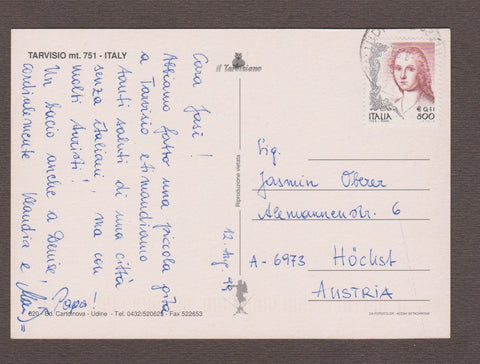 TARVISIO mt. 751 - ITALY
il Tarvisiano
Cara Jasi!
Abbiamo fatto una piccola gita
a Tarvisio e ti mandiamo
tanti saluti di una città
senza italiani, ma con
molti turisti!
Un bacio anche a Denise!
cordialmente Claudia e
Papa!
12. Aug. 99
Riproduzione vietata
€ 0,41
ITALIA 800
Sig.
Jasmin Oberer
Alemannenstr. 6
A - 6973 Höchst
AUSTRIA
620 - Ed. Cartonova - Udine - Tel. 0432/520625 - Fax 522653